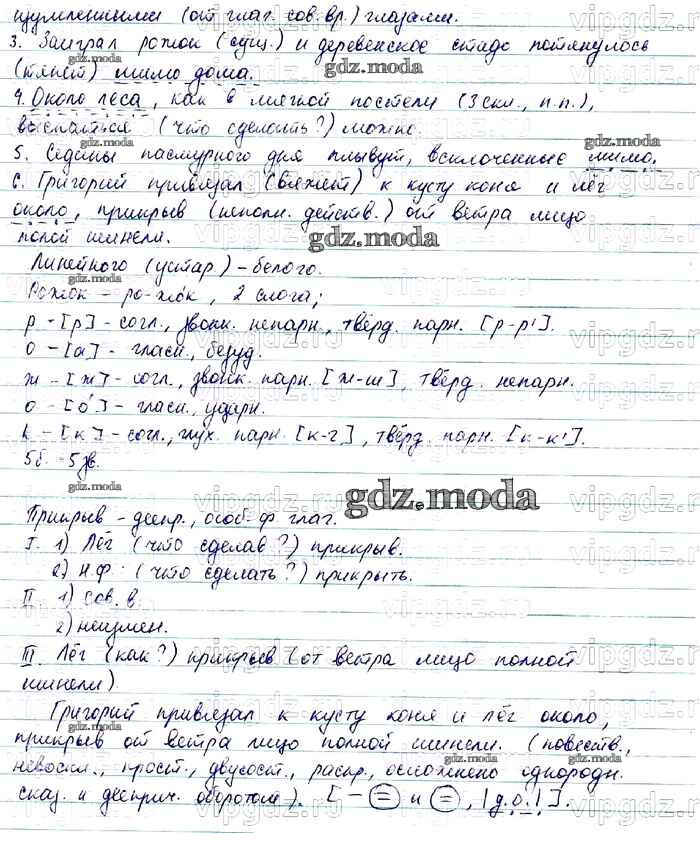 изумленными (от глаг. сов. вр.) глазами.
3. Заиграл рожок (сущ.) и деревенское стадо потянулось
(тянет) мимо дома.
4. Около леса, как в мягкой постели (3 скл., п.п.),
выспаться (что сделать?) можно.
5. Седины пасмурного дня плывут, всклоченные мимо.
6. Григорий привязал (вяжет) к кусту коня и лёг
около, прикрыв (неполн. действ.) от ветра лицо
полой шинели.
Линейного (устар.) - белого.
Рожок - ро-жок, 2 слога;
р - [р] - согл., звонк. непарн., твёрд. парн. [р-р'].
о - [а] - гласн., безуд.
ж - [ж] - согл., звонк. парн. [ж-ш], твёрд. непарн.
о - [о́] - гласн., ударн.
к - [к] - согл., глух. парн. [к-г], твёрд. парн. [к-к'].
5 б. - 5 зв.
Прикрыв - деепр., особ. ф. глаг.
I. 1) Лёг (что сделав?) прикрыв.
2) Н.ф.: (что сделать?) прикрыть.
II 1) сов. в.
2) неизмен.
III. Лёг (как?) прикрыв (от ветра лицо полной
шинели).
Григорий привязал к кусту коня и лёг около,
прикрыв от ветра лицо полной шинели. (повеств.,
невоскл., прост., двусост., распр., осложнено однородн.
сказ. и дееприч. оборотом). [- = и =, |д.о.|].
gdz.moda
vipgdz.ru